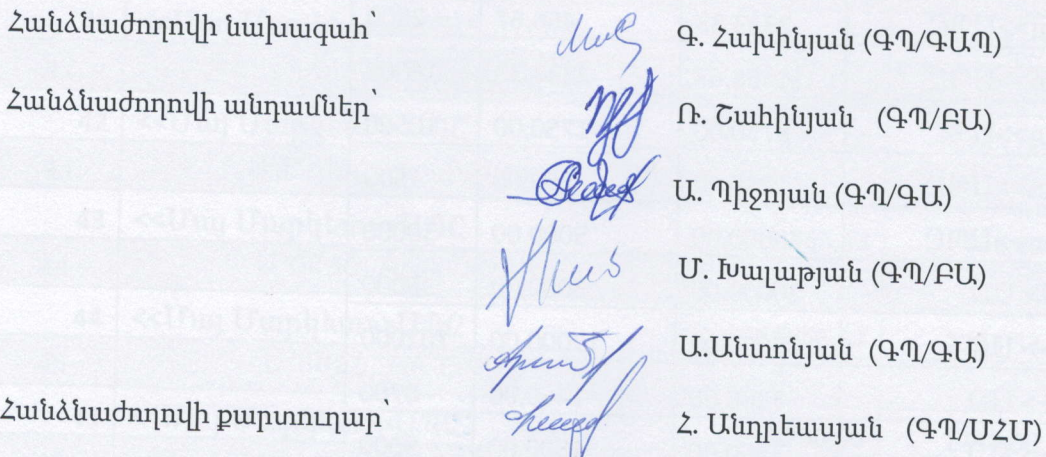 Հանձնաժողովի նախագահ՝ Գ. Հախինյան (ԳՊ/ԳԱՊ)
Հանձնաժողովի անդամներ՝ Ռ. Շահինյան (ԳՊ/ԲԱ)
Ա. Պիջոյան (ԳՊ/ԳԱ)
Մ. Խալաթյան (ԳՊ/ԲԱ)
Ա.Անտոնյան (ԳՊ/ԳԱ)
Հանձնաժողովի քարտուղար՝ Հ. Անդրեասյան (ԳՊ/ՄՀՄ)